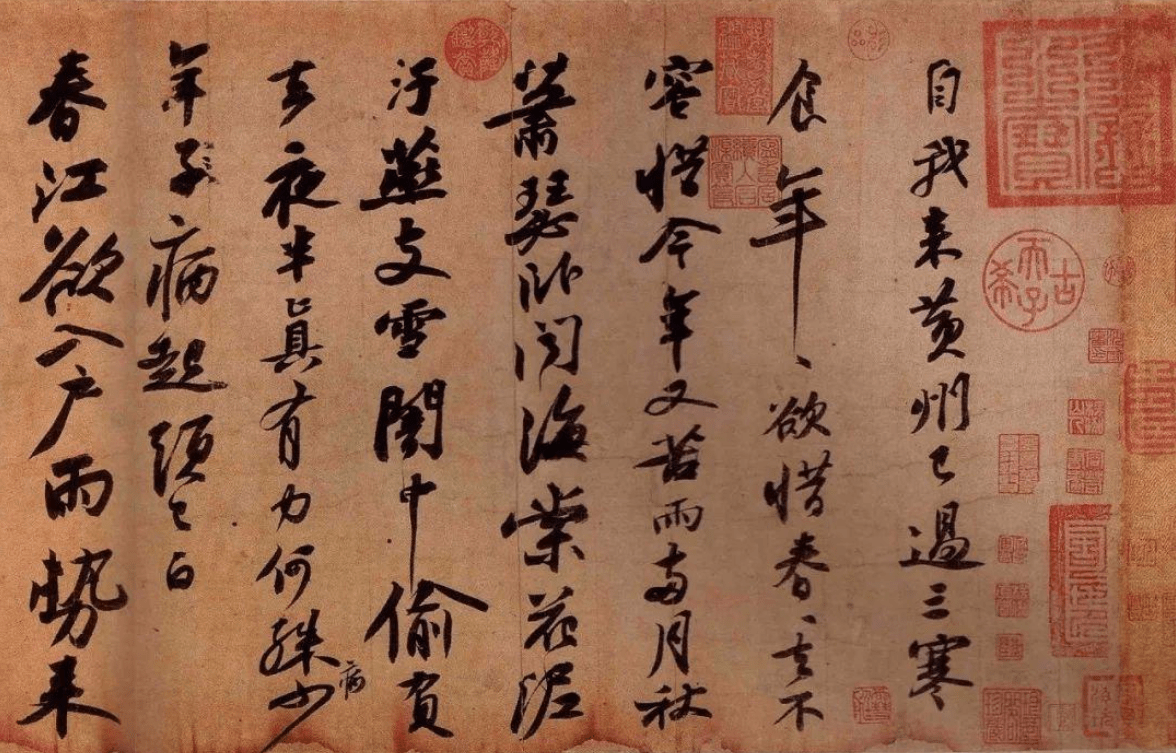 自我來黃州已過三寒
食年、欲惜春、去不
容惜今年又苦雨兩月秋
蕭瑟卧聞海棠花泥
汙燕支雪闇中偷負
去夜半真有力何殊少
病
年子病起須已白
春江欲入戶雨勢來
古希天子